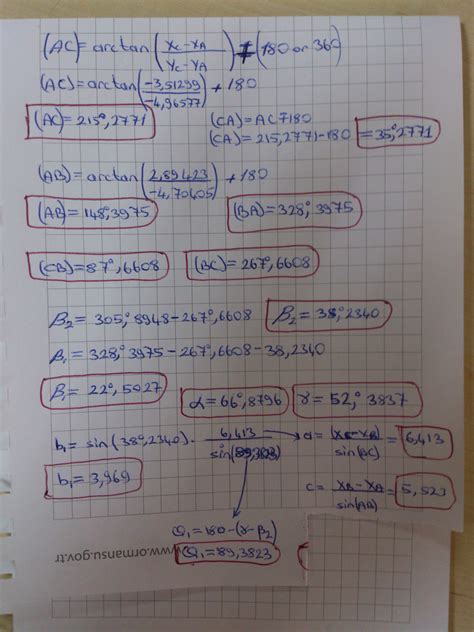 (AC) = arctan (Xc-XA / Yc-YA) ± (180 or 360)
(AC) = arctan (-3,51299 / -4,96577) + 180
(AC) = 215°,2771
(CA) = AC∓180
(CA) = 215,2771-180 = 35°,2771
(AB) = arctan (2,89423 / -4,70405) + 180
(AB) = 148°,3975
(BA) = 328°,3975
(CB) = 87°,6608
(BC) = 267°,6608
β2 = 305°,8948-267°,6608
β2 = 38°,2340
β1 = 328°,3975-267°,6608-38,2340
β1 = 22°,5027
α = 66°,8796
γ = 52°,3837
b1 = sin(38°,2340) · 6,413 / sin( )
b1 = 3,969
= (Xc-XA) / sin(AC) = 6,413
c = XB-XA / sin(AB) = 5,523
Q1 = 180-(γ-β2)
Q1 = 89,3823
www.ormansu.gov.tr